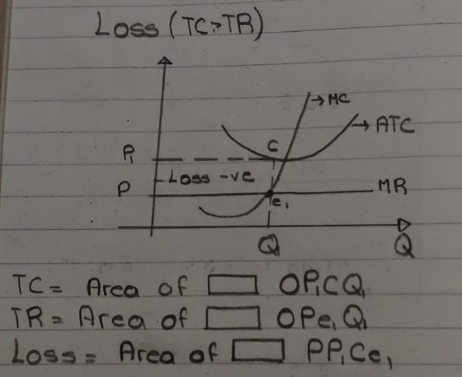 Loss (TC>TR)
MC
ATC
P₁
C
Loss -ve
P
e₁
MR
Q
Q
TC = Area of ▭ OP₁CQ₁
TR = Area of ▭ OPe₁Q₁
Loss = Area of ▭ PP₁Ce₁